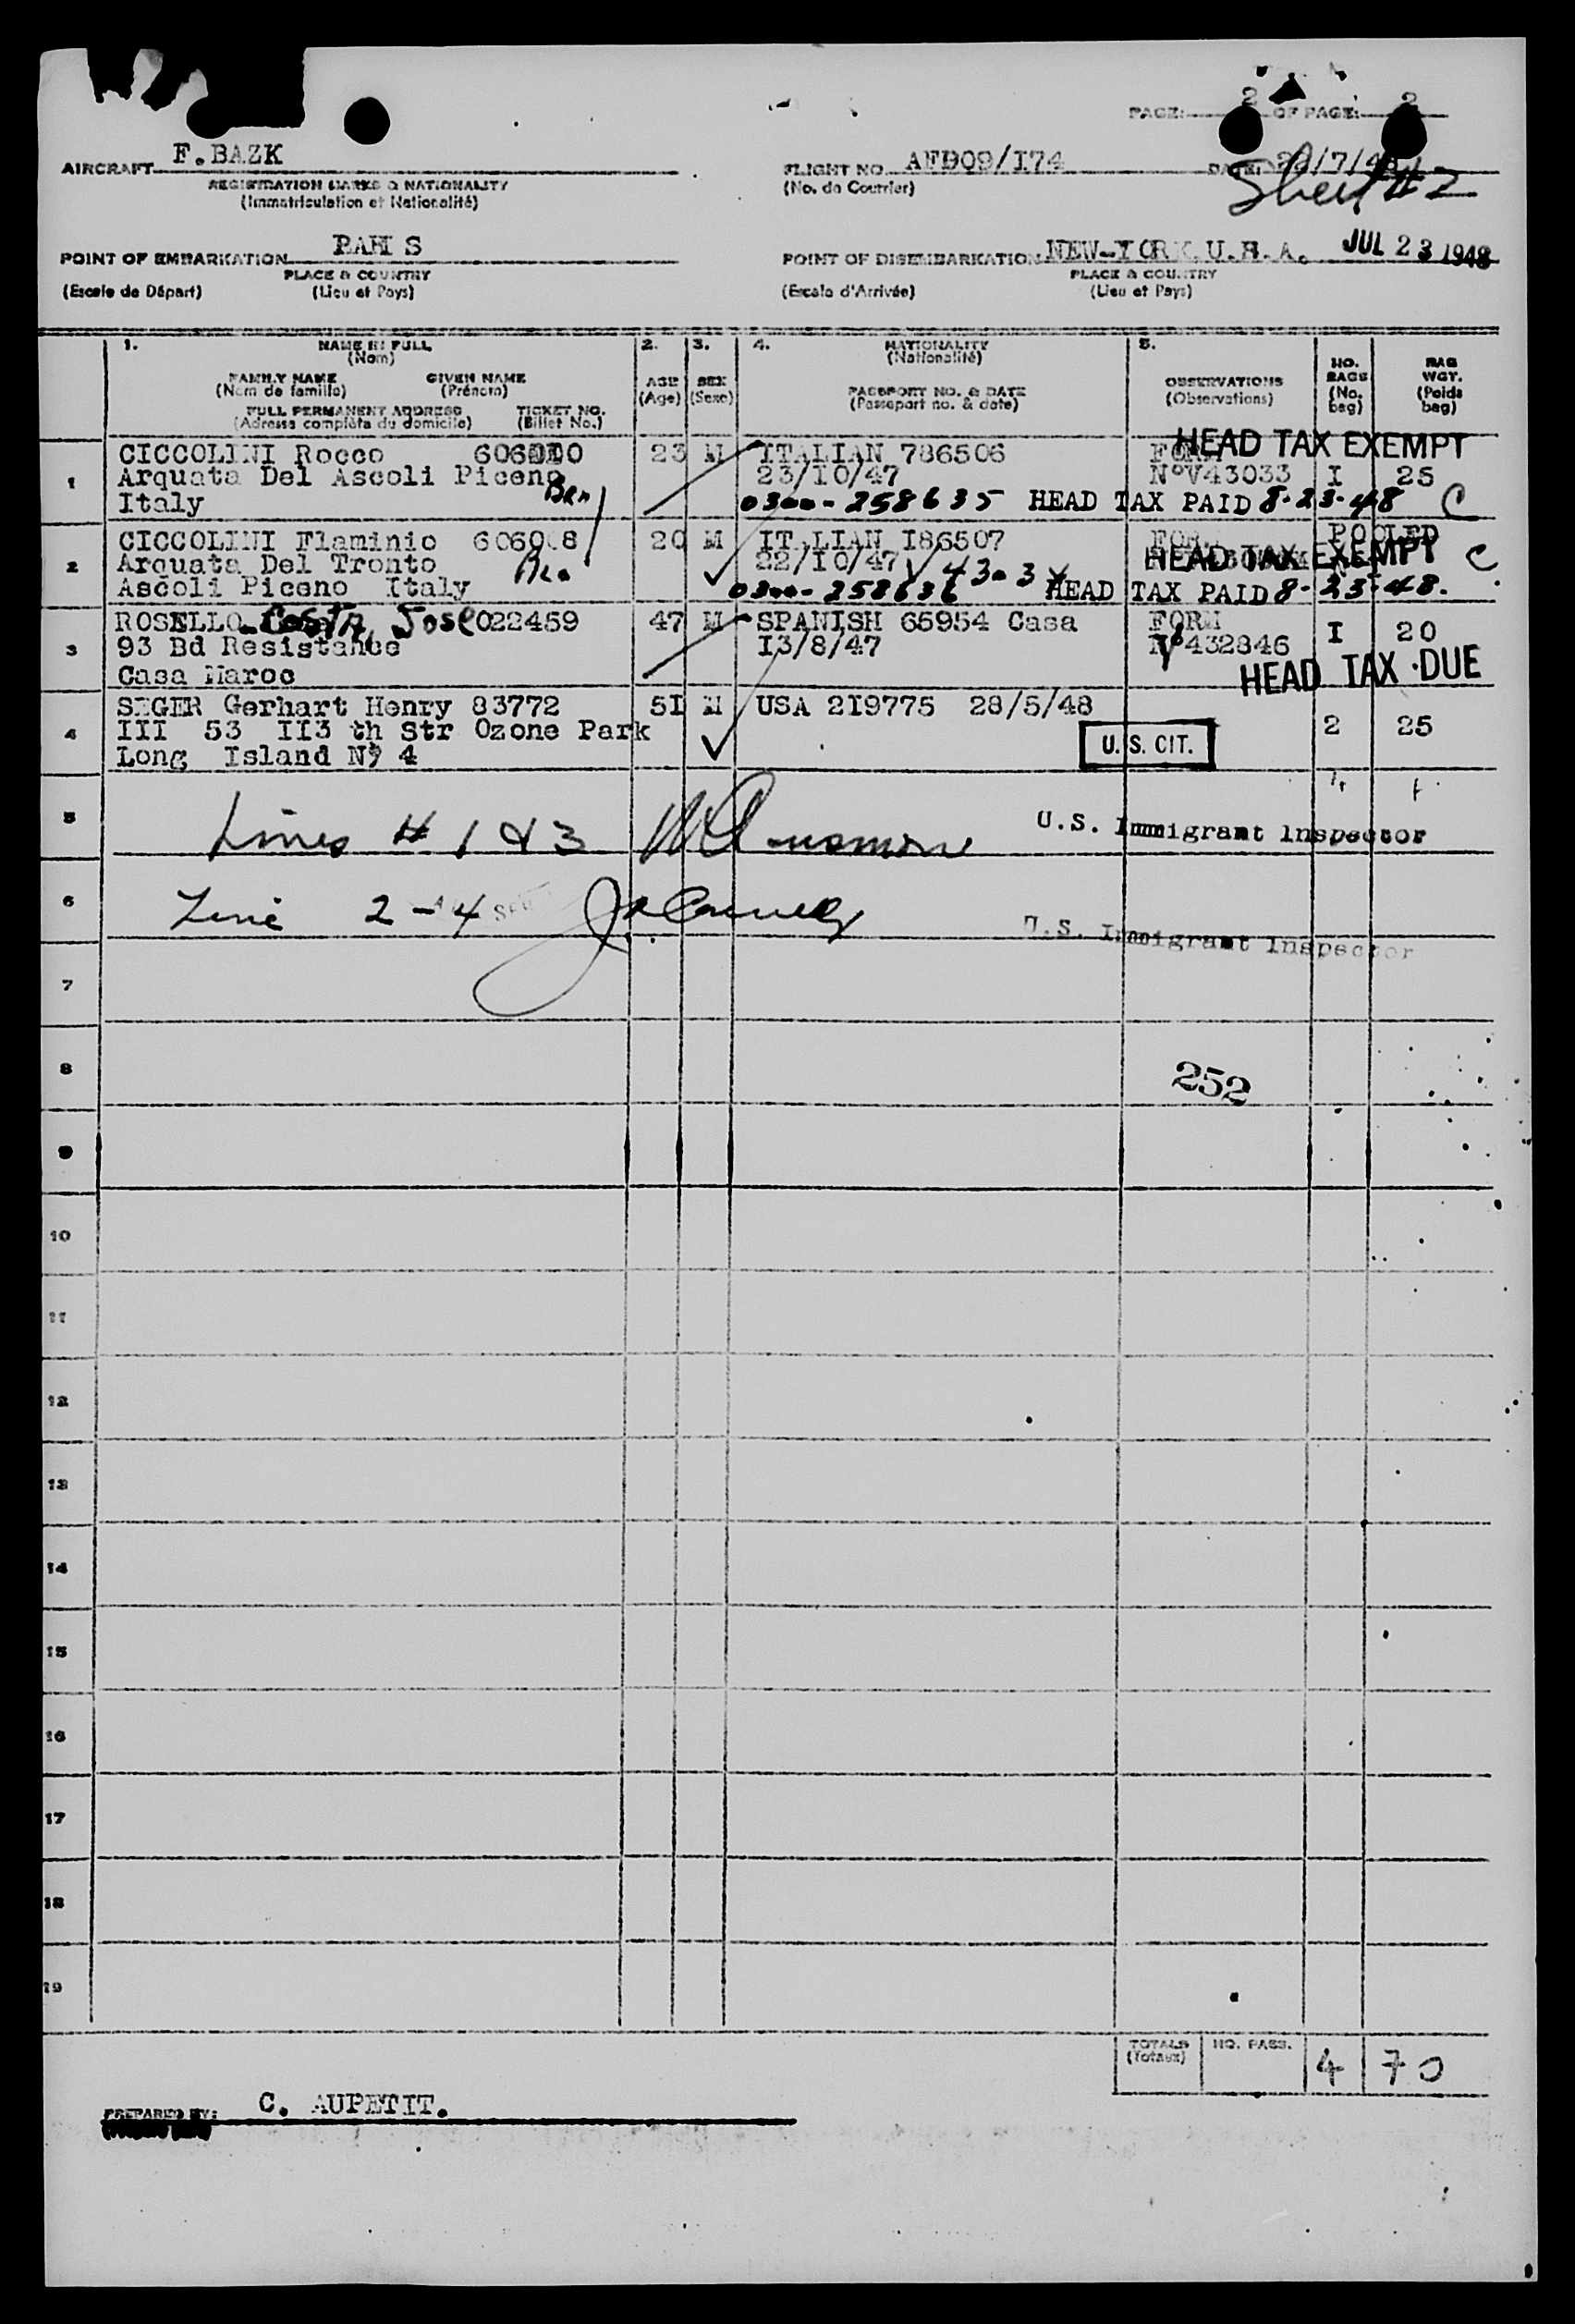 PAGE: 2 OF PAGE: 2
AIRCRAFT F.BAZK
FLIGHT NO. AFD09/I74 DATE: /7/48
REGISTRATION MARKS & NATIONALITY
(Immatriculation et Nationalité)
(No. de Courrier)
Sheet #2
POINT OF EMBARKATION
POINT OF DISEMBARKATION NEW-YORK U.S.A. JUL 23 1948
PLACE & COUNTRY
PLACE & COUNTRY
(Escale de Départ) (Lieu et Pays)
(Escale d'Arrivée) (Lieu et Pays)
1. NAME IN FULL 2. 3. 4. NATIONALITY 5.
(Nom) (Nationalité)
FAMILY NAME GIVEN NAME AGE SEX OBSERVATIONS NO. BAGS BAG WGT.
(Nom de famille) (Prénom) (Age) (Sexe) PASSPORT NO. & DATE (Observations) (No. bag) (Poids bag)
FULL PERMANENT ADDRESS TICKET NO. (Passeport no. & date)
(Adresse complète du domicile) (Billet No.)
HEAD TAX EXEMPT
1 CICCOLINI Rocco 23 M ITALIAN 786506 FORM
Arquata Del Ascoli Piceno 23/IO/47 N°V43033 I 25
Italy 0300-258635 HEAD TAX PAID 8-23-48 C
2 CICCOLINI Flaminio 20 M ITALIAN I86507 POOLED
Arquata Del Tronto 22/IO/47 HEAD TAX EXEMPT C
Ascoli Piceno Italy 0300-258636 HEAD TAX PAID 8-23-48.
3 ROSELLO COSTA, Jose 022459 47 M SPANISH 65954 Casa FORM
93 Bd Resistance I3/8/47 N°432846 I 20
Casa Maroc HEAD TAX DUE
4 SEGER Gerhart Henry 83772 5I M USA 2I9775 28/5/48
III 53 II3 th Str Ozone Park U.S. CIT. 2 25
Long Island NY 4
5 Lines # 1 & 3 U.S. Immigrant Inspector
6 Line 2-4 U.S. Immigrant Inspector
7
8 252
9
10
11
12
13
14
15
16
17
18
19
TOTALS NO. PASS. 4 70
(Totaux)
PREPARED BY: C. AUPETIT.